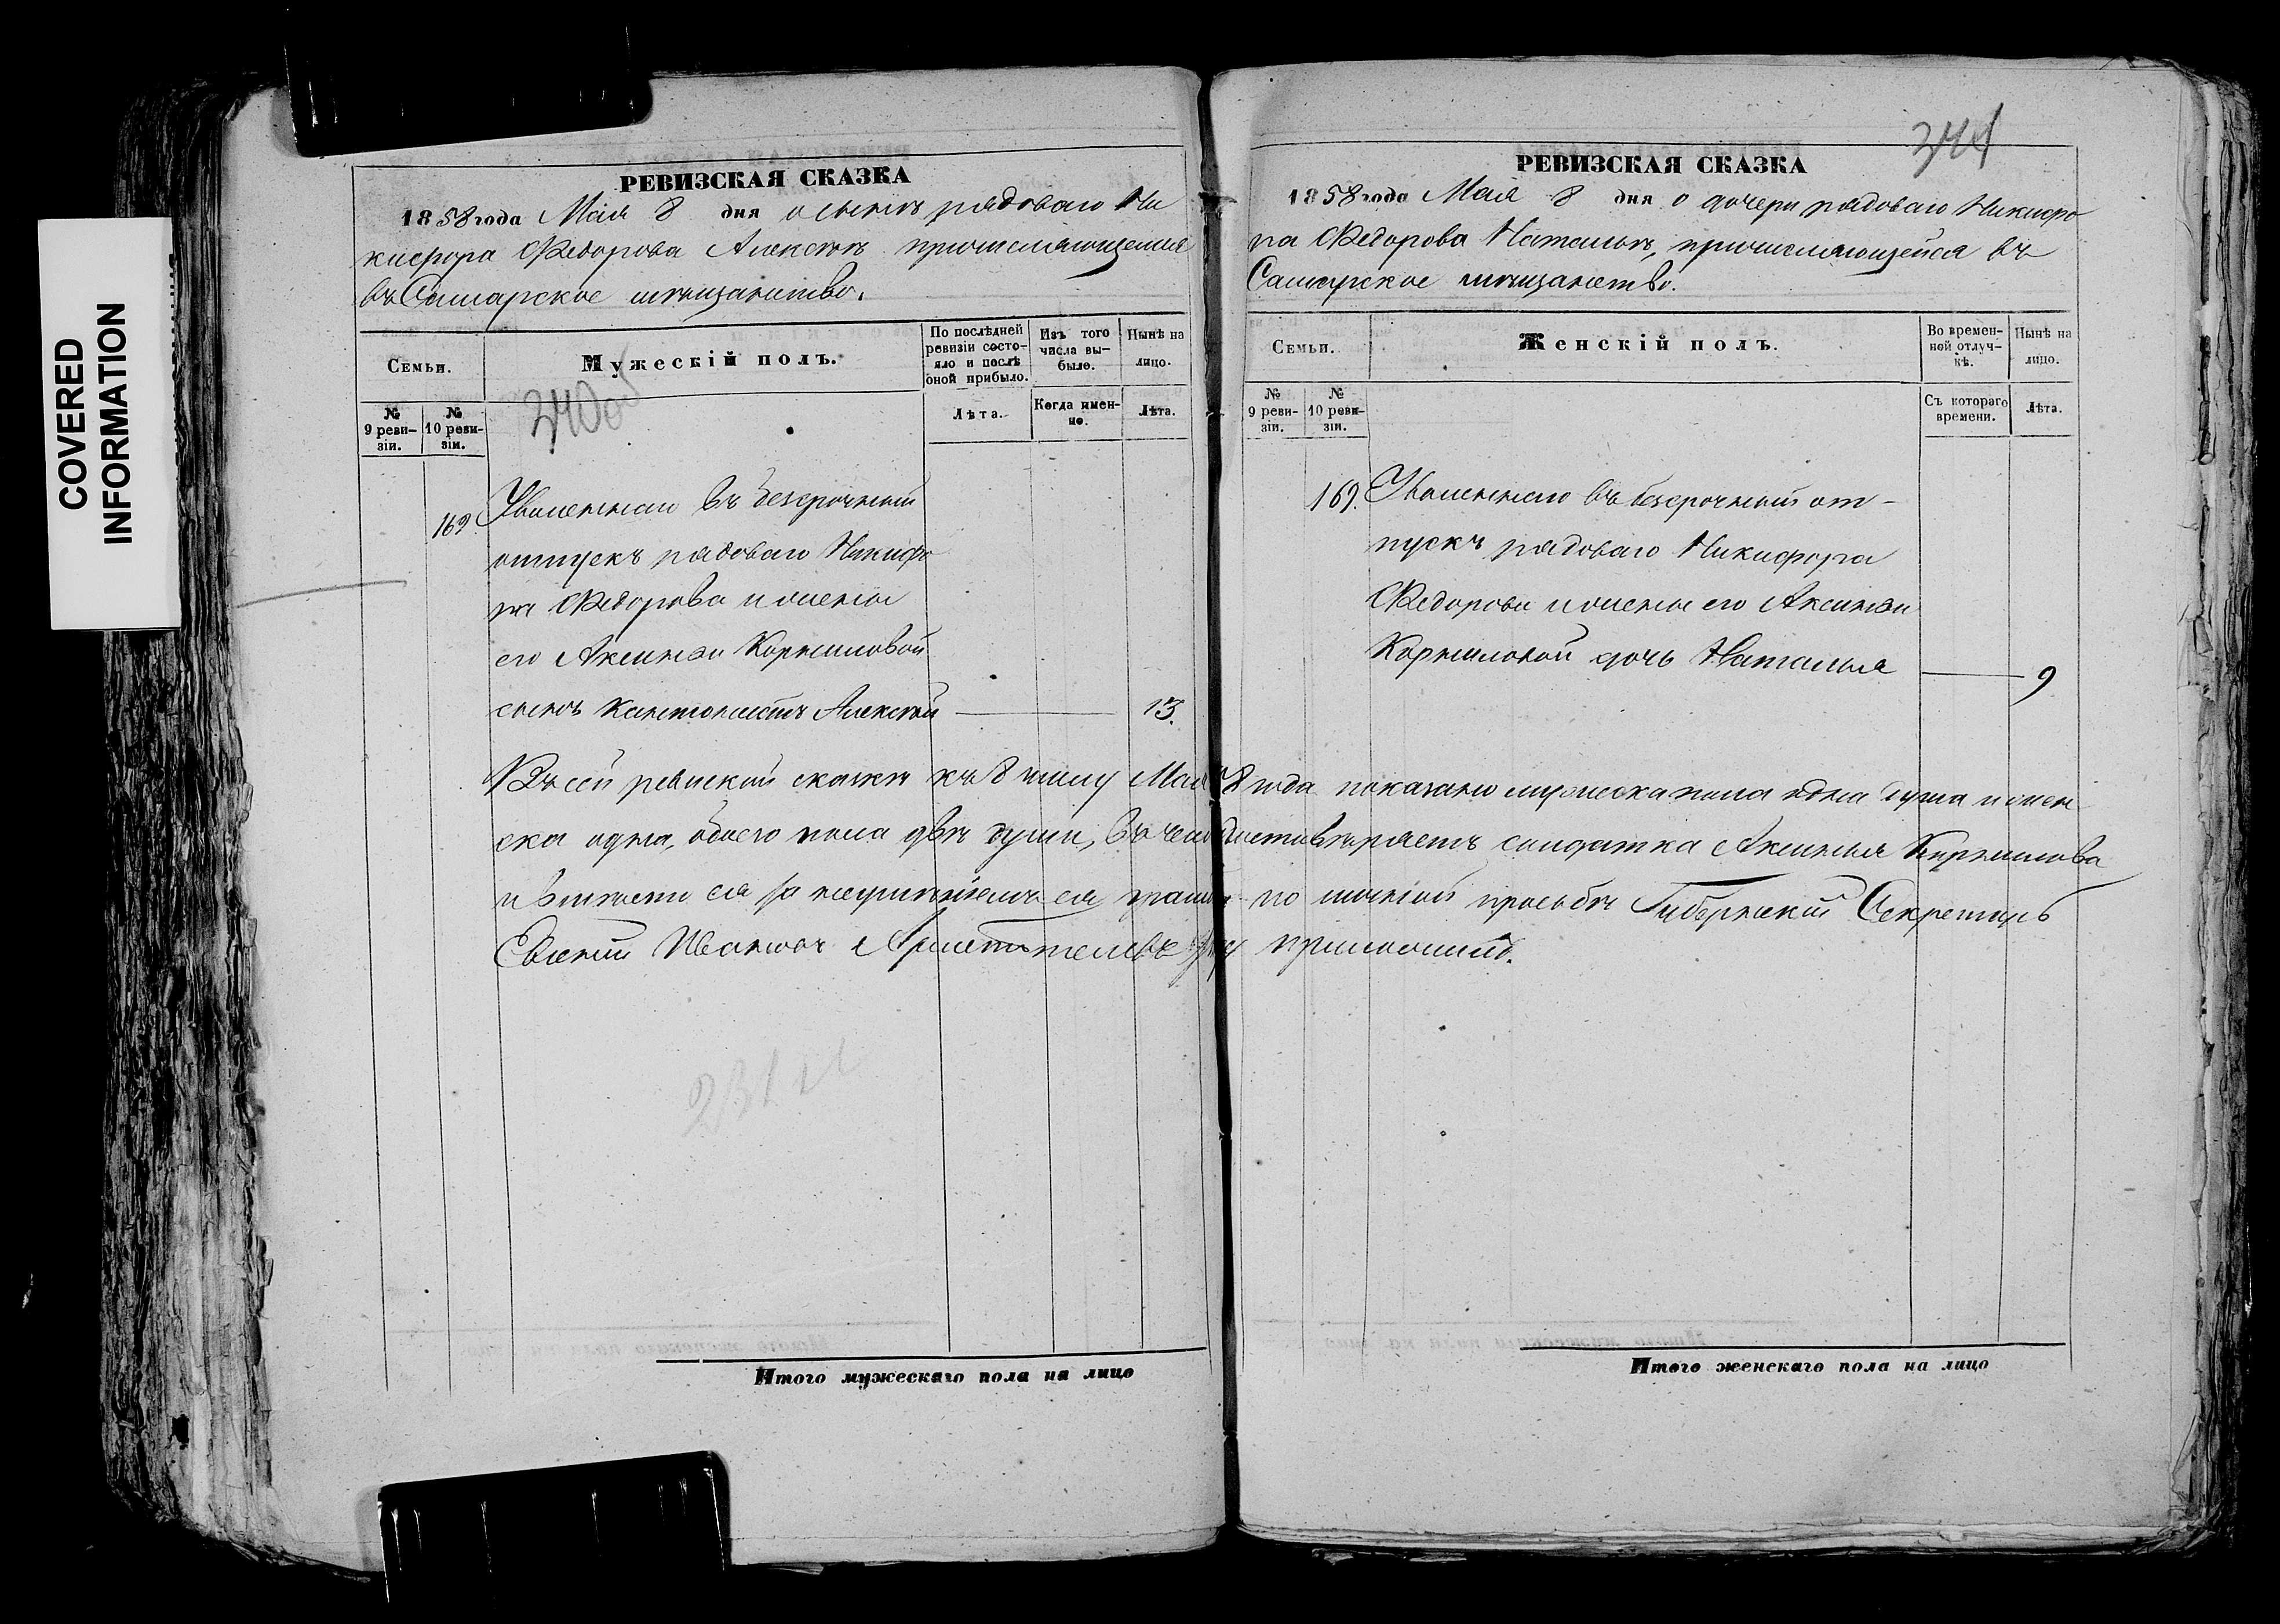 COVERED
INFORMATION
РЕВИЗСКАЯ СКАЗКА
1858 года Мая 8 дня о сынѣ рядоваго Ни
кифора Ѳедорова Алексѣѣ причисляющемся
въ Самарское мѣщанство.
Семьи.
Мужескій полъ.
По послѣдней ревизіи состояло и послѣ оной прибыло.
Изъ того числа выбыло.
Нынѣ на лицо.
№ 9 ревизіи.
№ 10 ревизіи.
340 об
Лѣта.
Когда именно.
Лѣта.
169 Уволеннаго въ безсрочный
отпускъ рядоваго Никифо
ра Ѳедорова и жены
его Аксиньи Корниловой
сынъ кантонистъ Алексѣй 13.
344
РЕВИЗСКАЯ СКАЗКА
1858 года Мая 8 дня о дочери рядоваго Никифо
ра Ѳедорова Натальѣ, причисляющейся въ
Самарское мѣщанство.
Семьи.
Женскій полъ.
Во временной отлучкѣ.
Нынѣ на лицо.
№ 9 ревизіи.
№ 10 ревизіи.
Съ котораго времени.
Лѣта.
169. Уволеннаго въ безсрочный от-
пускъ рядоваго Никифора
Ѳедорова и жены его Аксиньи
Корниловой дочь Наталья 9
Въ сей ревиской скаскѣ къ 8 числу Мая 58 года показано мужеска пола одна душа и жен
ска одна, обоего пола двѣ души, въ чемъ солдатка Аксинья Корнилова
и вмѣсто ея за неумѣніемъ ея грамотѣ по личной прозьбѣ Губернскій Секретарь
Евгеній Ивановъ руку приложилъ.
Итого мужескаго пола на лицо
Итого женскаго пола на лицо